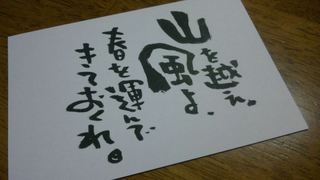 山を越え、
風よ、
春を運んで
きておくれ。